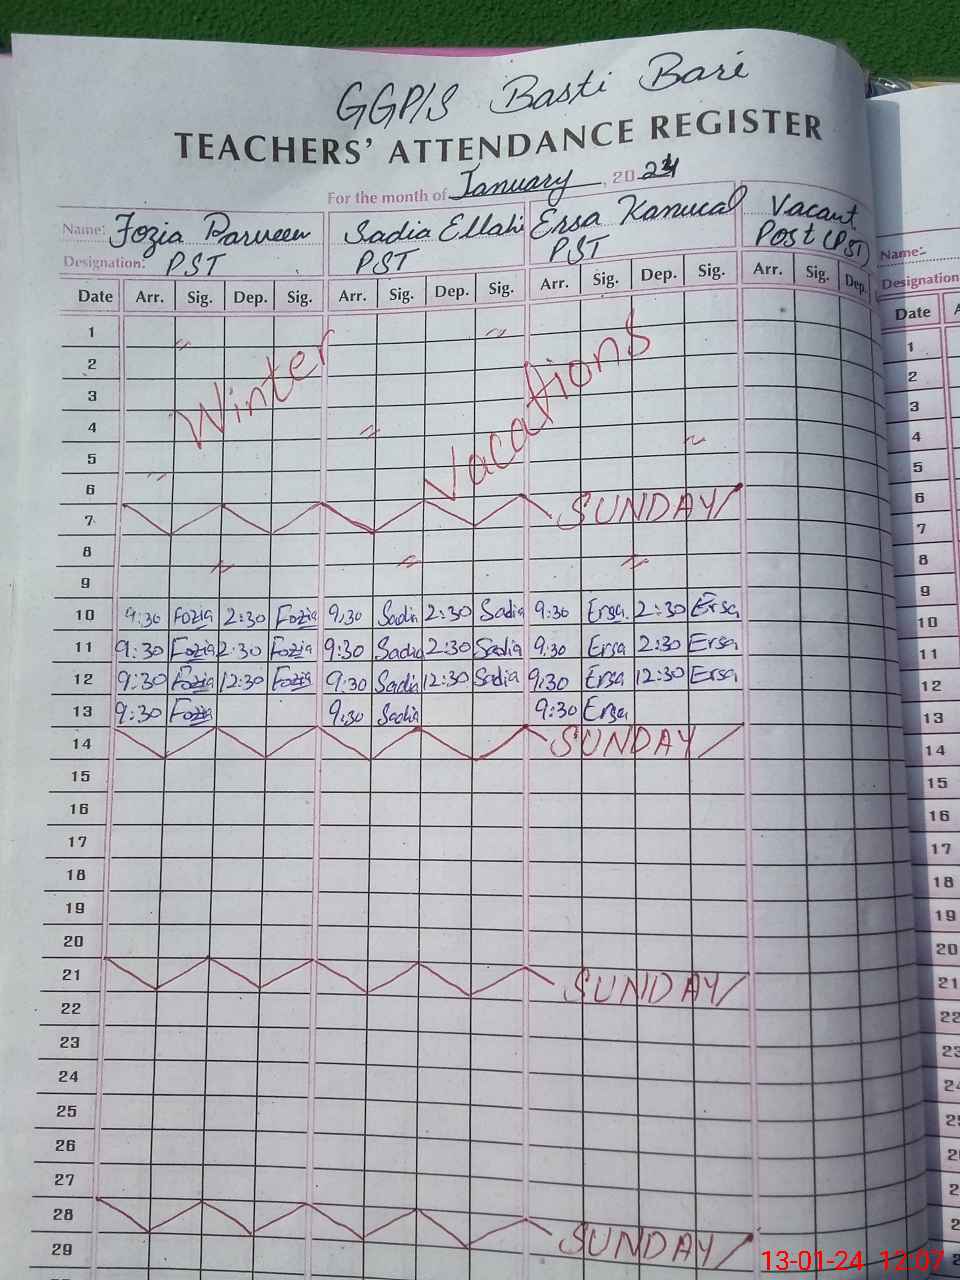 GGP/S Basti Bari
TEACHERS' ATTENDANCE REGISTER
For the month of January, 2024
Name: Fozia Parveen Sadia Ellahi Ersa Kanwal Vacant
Designation: PST PST PST Post (PST)
Date Arr. Sig. Dep. Sig. Arr. Sig. Dep. Sig. Arr. Sig. Dep. Sig. Arr. Sig. Dep.
1
2
3
4
5
6
Winter Vacations
7 SUNDAY
8
9
10 9:30 Fozia 2:30 Fozia 9:30 Sadia 2:30 Sadia 9:30 Ersa 2:30 Ersa
11 9:30 Fozia 2:30 Fozia 9:30 Sadia 2:30 Sadia 9:30 Ersa 2:30 Ersa
12 9:30 Fozia 12:30 Fozia 9:30 Sadia 12:30 Sadia 9:30 Ersa 12:30 Ersa
13 9:30 Fozia 9:30 Sadia 9:30 Ersa
14 SUNDAY
15
16
17
18
19
20
21 SUNDAY
22
23
24
25
26
27
28 SUNDAY
29
Name:-
Designation
Date
1
2
3
4
5
6
7
8
9
10
11
12
13
14
15
16
17
18
19
20
21
22
23
24
13-01-24 12:07